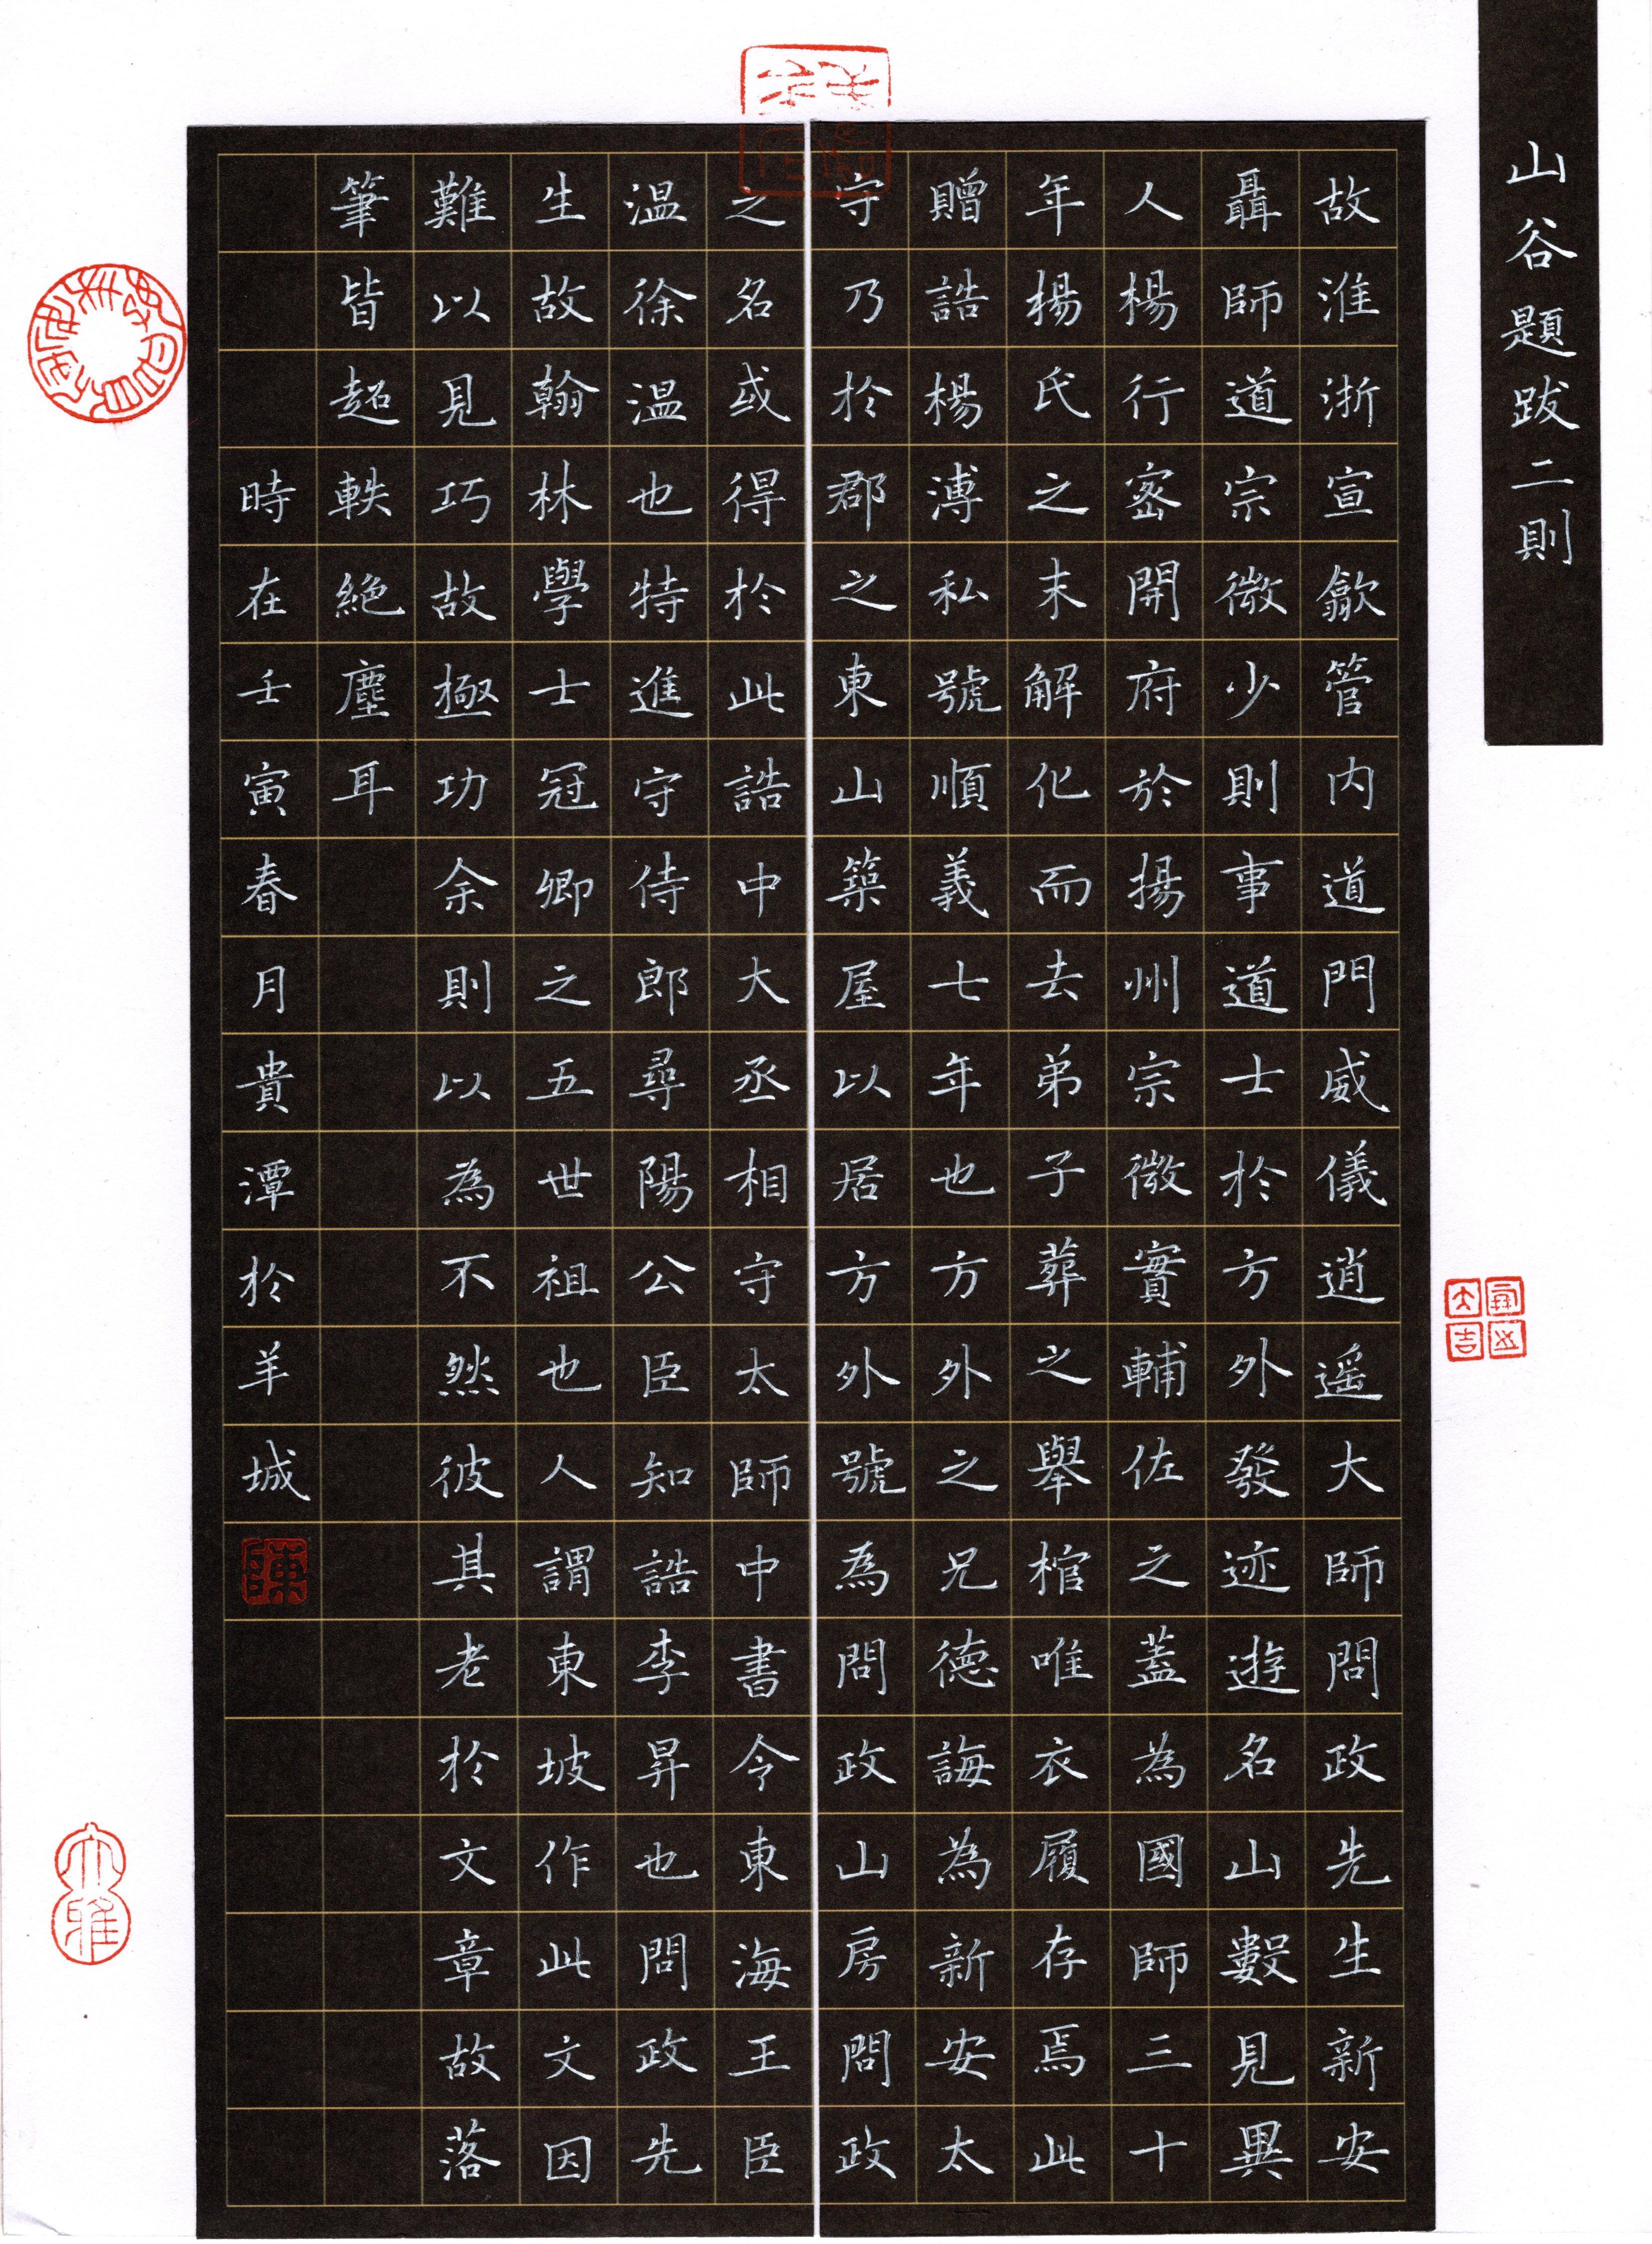 山谷題跋二則
故淮浙宣歙管内道門威儀逍遥大師問政先生新安
聶師道宗微少則事道士於方外發迹遊名山數見異
人楊行密開府於揚州宗微實輔佐之蓋為國師三十
年楊氏之末解化而去弟子葬之舉棺唯衣履存焉此
贈誥楊溥私號順義七年也方外之兄德誨為新安太
守乃於郡之東山築屋以居方外號為問政山房問政
之名或得於此誥中大丞相守太師中書令東海王臣
温徐温也特進守侍郎尋陽公臣知誥李昇也問政先
生故翰林學士冠卿之五世祖也人謂東坡作此文因
難以見巧故極功余則以為不然彼其老於文章故落
筆皆超軼絶塵耳
時在壬寅春月貴潭於羊城
陳
大吉
大雅